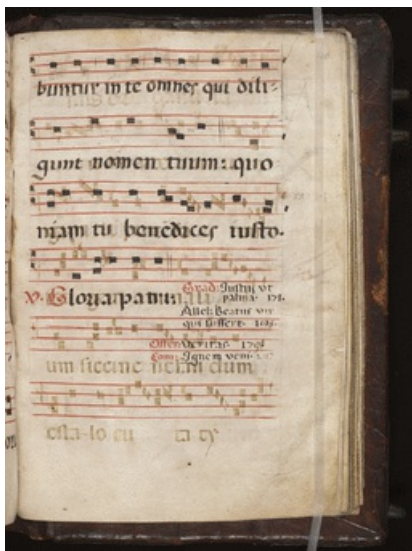 buntur in te omnes qui dili-
gunt nomen tuum: quo
niam tu benedices iusto.
V. Gloria patri.
Grad: Justus ut
palma. 171.
Allel: Beatus vir
qui suffert.
Offer: Veritas. 179.
Com: Ignem veni.
um siccine